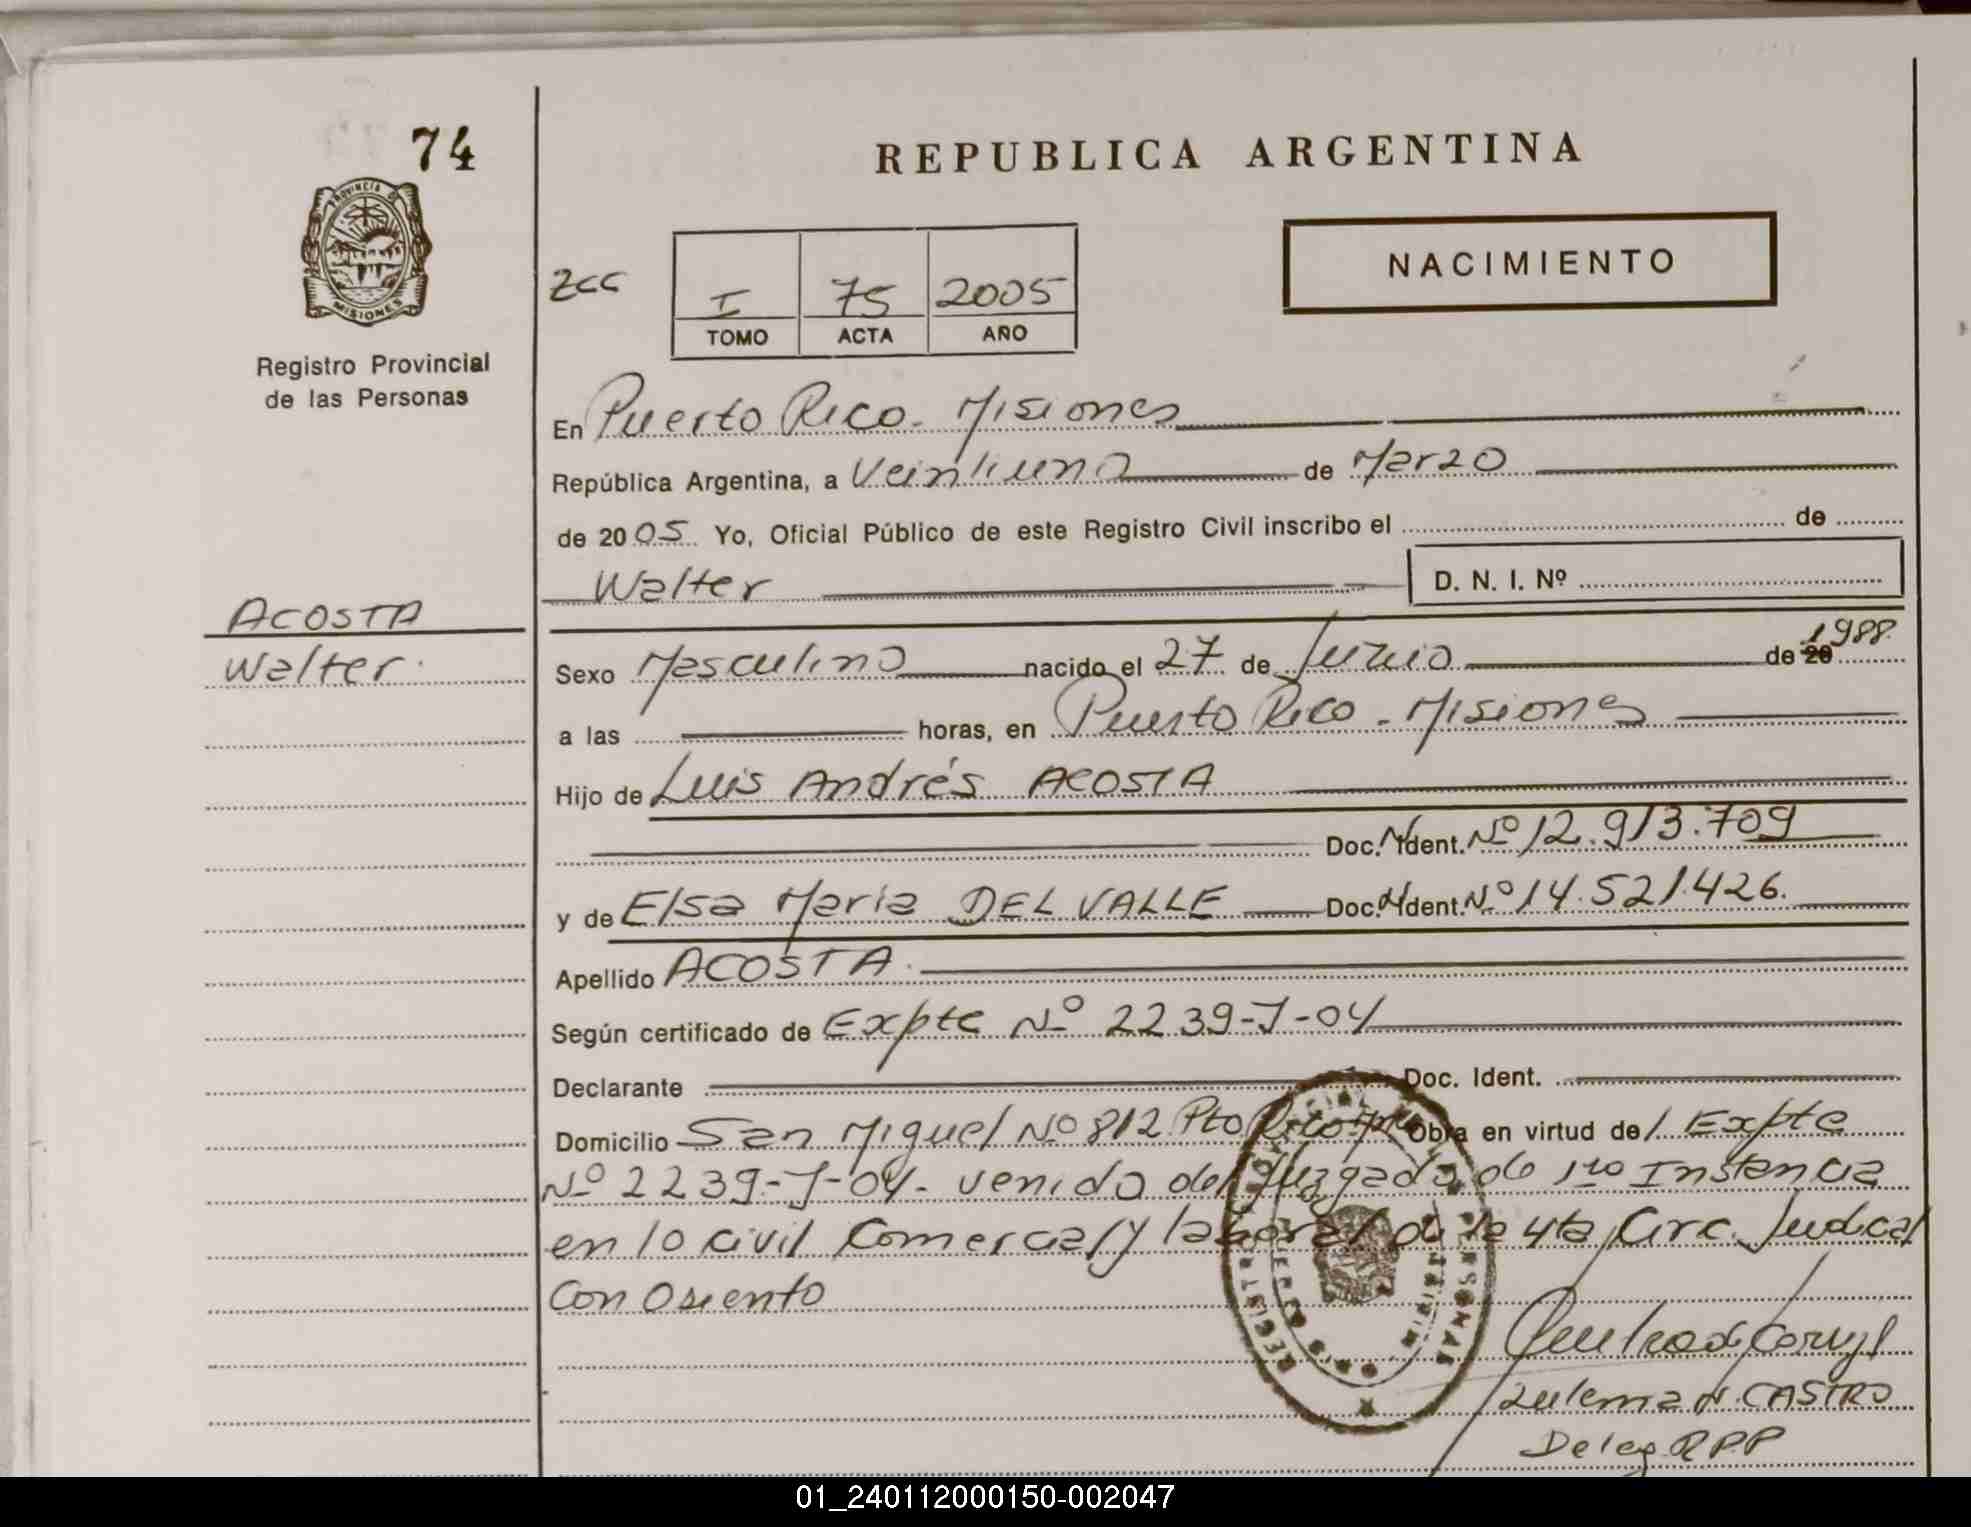 74
REPUBLICA ARGENTINA
PROVINCIA DE
MISIONES
Registro Provincial
de las Personas
Zcc
I 75 2005
TOMO ACTA AÑO
NACIMIENTO
En Puerto Rico - Misiones
República Argentina, a Veintiuno de Marzo
de 2005 Yo, Oficial Público de este Registro Civil inscribo el de
Walter D. N. I. Nº
ACOSTA
Walter.
Sexo Masculino nacido el 27 de Junio de 20 1988.
a las horas, en Puerto Rico - Misiones
Hijo de Luis Andrés ACOSTA
Doc. N. Ident. Nº 12.913.709
y de Elsa Maria DEL VALLE Doc. N. Ident. Nº 14.521.426.
Apellido ACOSTA.
Según certificado de Expte Nº 2239-J-04
Declarante Doc. Ident.
Domicilio San Miguel Nº 812 Pto Rico Obra en virtud del Expte
Nº 2239-J-04- venido del Juzgado de 1ro Instancia
en lo civil Comercial y laboral de la 4ta Circ. Judical
Con Osiento
Zulema N. CASTRO
Deleg RPP
01_240112000150-002047